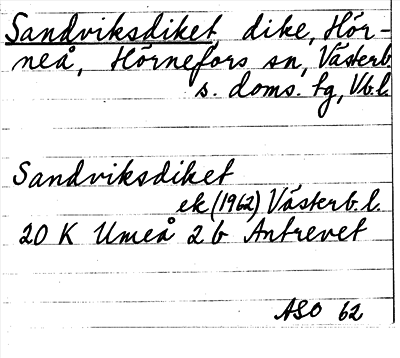 Sandviksdiket, dike, Hör-
neå, Hörnefors sn, Västerb.
s. doms. tg, Vb.l.
Sandviksdiket
ek (1962) Västerb. l.
20 K Umeå 2 b Antrevet
ASO 62